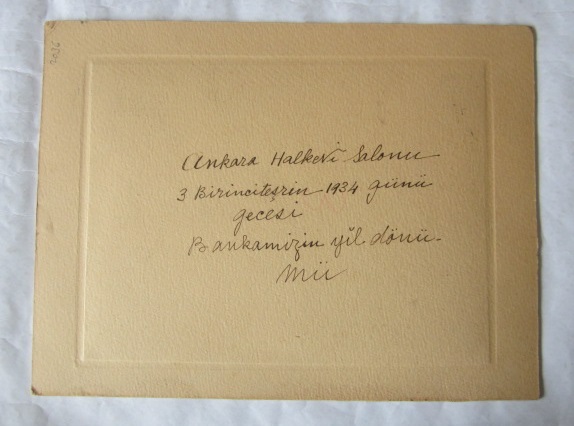 Ankara Halkevi Salonu
3 Birinciteşrin 1934 günü
gecesi
Bankamızın yıl dönü-
mü